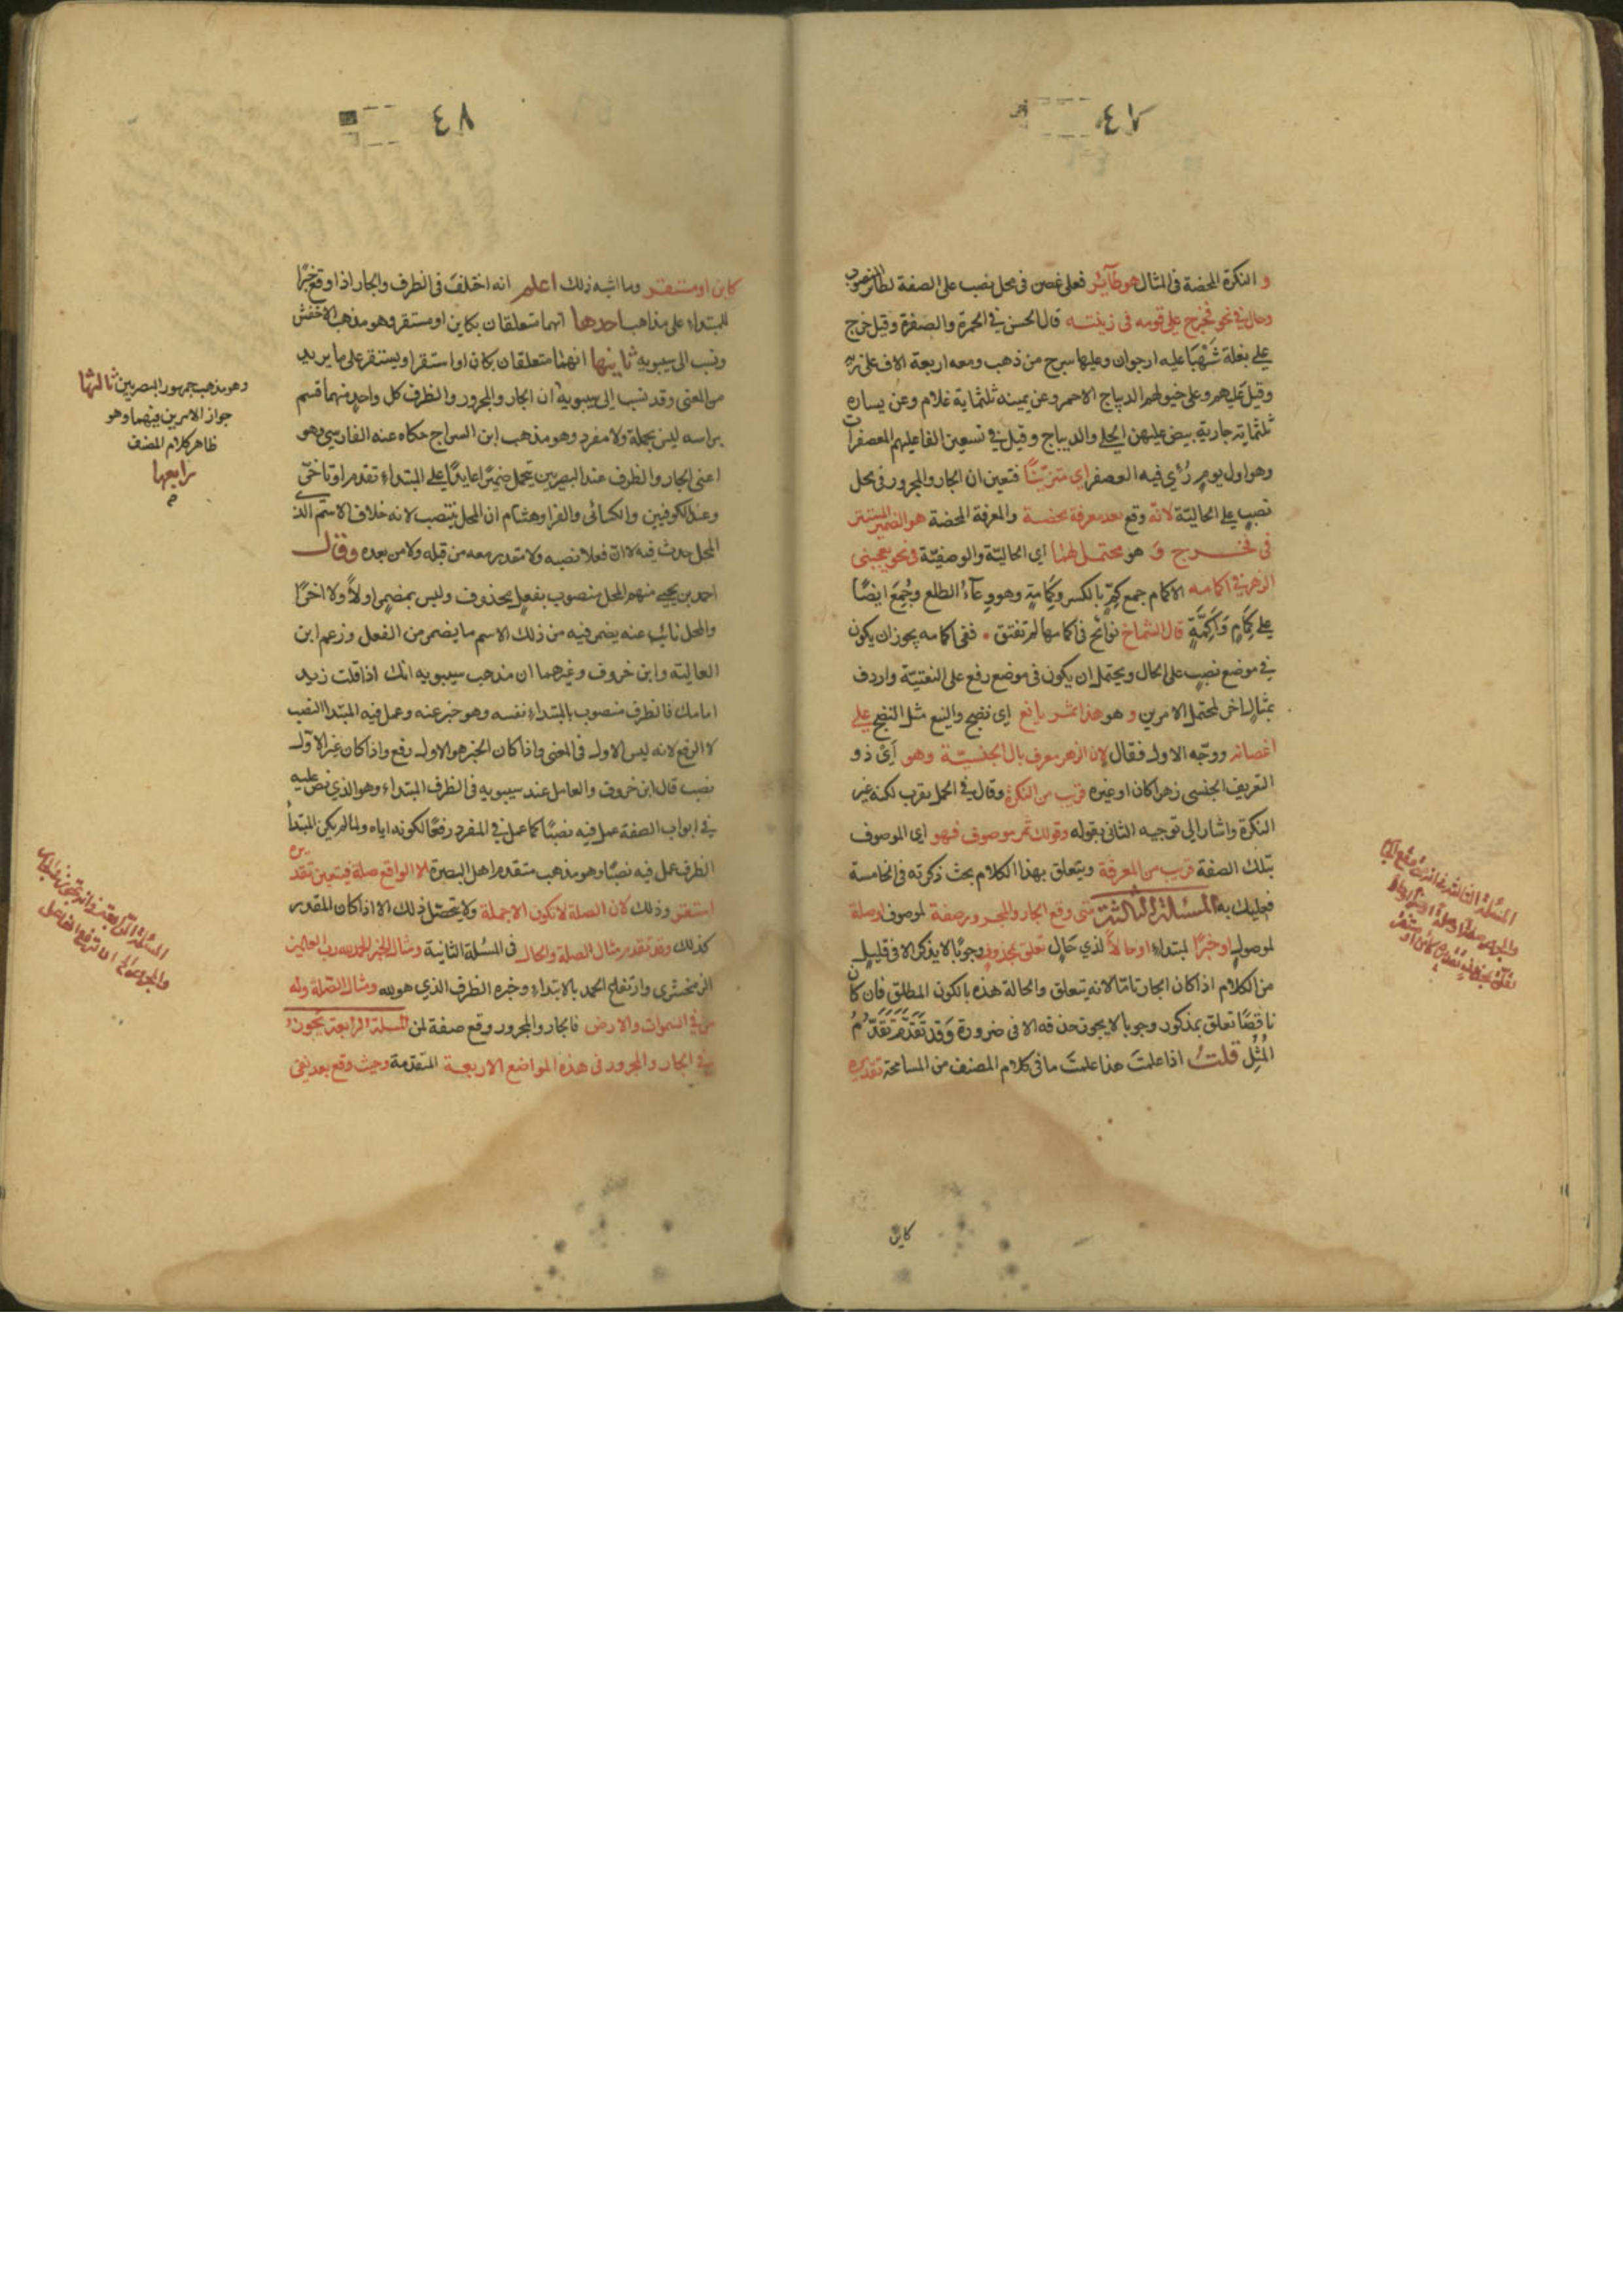 ٤٧
و النكرة المحضة فى المثال هو طائر فعلى غصن فى محل نصب على الصفة لطائر المنصوب
وحال في نحو فخرج على قومه فى زينته قال الحسن في الحمرة والصفرة وقيل خرج
على بغلة شَهْبَا عليه ارجوان وعليها سرج من ذهب ومعه اربعة الاف على زيه
وقيل عليهم وعلى خيولهم الديباج الاحمر وعن يمينه ثلثماية غلام وعن يساره
ثلثماية جارية بيض عليهن الحلي والديباج وقيل في تسعين الفا عليهم المعصفرات
وهو اول يوم رُؤي فيه المعصفر اي متزيّنًا فتعين ان الجار والمجرور فى محل
نصب على الحاليّة لانه وقع بعد معرفة محضة والمعرفة المحضة هو الضمير المستتر
فى فخرج وَ هو محتمل لهما اي الحاليّة والوصفيّة فى نحو يعجبنى
الزهر في اكمامه الاكمام جمع كِمّ بالكسر وكِمَامة وهو وِعآءُ الطلع وجُمِعَ ايضًا
على كِمَامٍ وَاَكِمَّةٍ قال الشماخ نوائح فى اكمامها لم تفتق ٠ ففى اكمامه يجوز ان يكون
في موضع نصب على الحال ويحتمل ان يكون فى موضع رفع على النعتيّة واردف
بمثال اخر لمحتمل الامرين و هو هذا ثمر يانع اى نضيج والينع مثل النضج على
اغصانه ووجّه الاول فقال لان الزهر معرف بال الجنسيّة وهو اَىْ ذو
التعريف الجنسى زهرا كان او غيره قريب من النكرة وقال في الحمل يقرب لكنه غير
النكرة واشار الى توجيه الثانى بقوله وقولك ثمر موصوف فهو اى الموصوف
بتلك الصفة قريب من المعرفة ويتعلق بهذا الكلام بحث ذكرته فى الخامسة
فعليك به المسئلة الثالثة متى وقع الجار والمجرور صفة لموصوف او صلة
لموصول او خبرًا لمبتداء او حالاً لذي حال تعلق بمحذوف وجوبًا لا يذكر الا فى قليل
من الكلام اذا كان الجار تامّا لانه يتعلق والحالة هذه بالكون المطلق فان كان
ناقصًا تعلق بمذكور وجوبا لا يجوز حذفه الا فى ضرورة وَقد تَقَدَّمَ تَقَدُّمُ
المُثُلِ قلت اذا علمتَ هذا علمتَ ما فى كلام المصنف من المسامحة تقديره
كاين
٤٨
كاين او مستقر وما اشبه ذلك اعلم انه اختلفَ فى الظرف والجار اذا وقع خبرًا
للمبتداء على مذاهب احدها انهما متعلقان بكاين او مستقر وهو مذهب الاخفش
ونسب الى سيبويه ثانيها انهما متعلقان بكان او استقر او يستقر على ما يريد
من المعنى وقد نسب الى سيبويه ان الجار والمجرور والظرف كل واحد منهما قسم
براسه ليس بجملة ولا مفرد وهو مذهب ابن السراج حكاه عنه الفارسي وهو
اعنى الجار والظرف عند البصريين يتحمل ضميرًا عايدًا على المبتداء تقدم او تاخّر
وعند الكوفيين والكسائى والفرا وهشام ان المحل ينتصب لانه خلاف الاسم الذى
المحل حدث فيه لا انّ فعلا نصبه ولا متقدر معه من قبله ولا من بعده وقال
احمد بن يحيى منهم المحل منصوب بفعل محذوف وليس بمضمر اولاً ولا اخرًا
والمحل نائب عنه يضمر فيه من ذلك الاسم ما يضمر من الفعل وزعم ابن
العالية وابن خروف وغيرهما ان مذهب سيبويه انك اذا قلت زيد
امامك فالظرف منصوب بالمبتداء نفسه وهو خبر عنه وعمل فيه المبتدا النصب
لا الرفع لانه ليس الاول فى المعنى واذا كان الخبر هو الاول رفع واذا كان غير الاول
نصب قال ابن خروف والعامل عند سيبويه فى الظرف المبتداء وهو الذي نص عليه
في ابواب الصفة عمل فيه نصبًا كما عمل في المفرد رفعًا لكونه اياه ولما لم يكن المبتدأ
الظرف عمل فيه نصبًا وهو مذهب متقدم اهل البصرة الا الواقع صلة فيتعين تقديره
استقر وذلك لان الصلة لا تكون الا جملة ولا يتحصّل ذلك الا اذا كان المقدر
كذلك وقد تقدم مثال الصلة والحال فى المسئلة الثانية ومثال الخبر الحمد لله رب العالمين
الزمخشرى وارتفاع الحمد بالابتداء وخبره الظرف الذي هو لله ومثال الصّلة وله
من في السموات والارض فالجار والمجرور وقع صفة لمن المسئلة الرابعة يجوز
في الجار والمجرور فى هذه المواضع الاربعة المتقدمة وحيث وقع بعد نفى
وهو مذهب جمهور البصريين ثالثها
جواز الامرين فيهما وهو
ظاهر كلام المصنف
رابعها